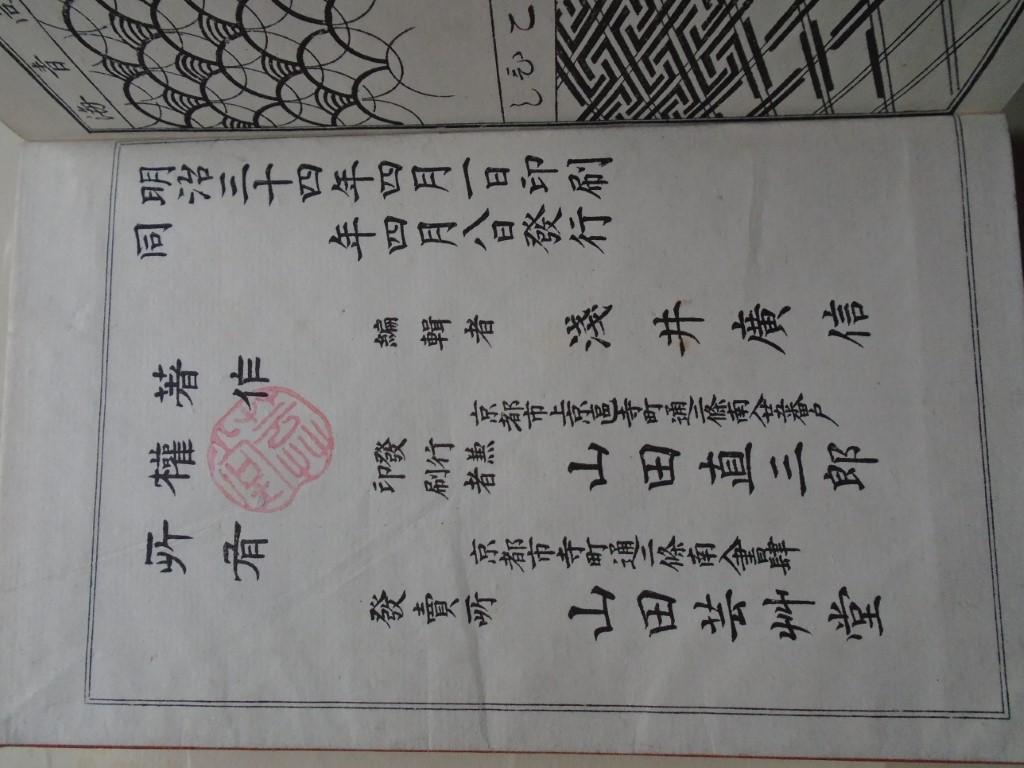 明治三十四年四月一日印刷
同年四月八日發行
編輯者 淺井廣信
京都市上京區寺町通二條南入番戶
發行兼
印刷者 山田直三郎
京都市寺町通二條南入書肆
發賣所 山田芸艸堂
著作
權
所有